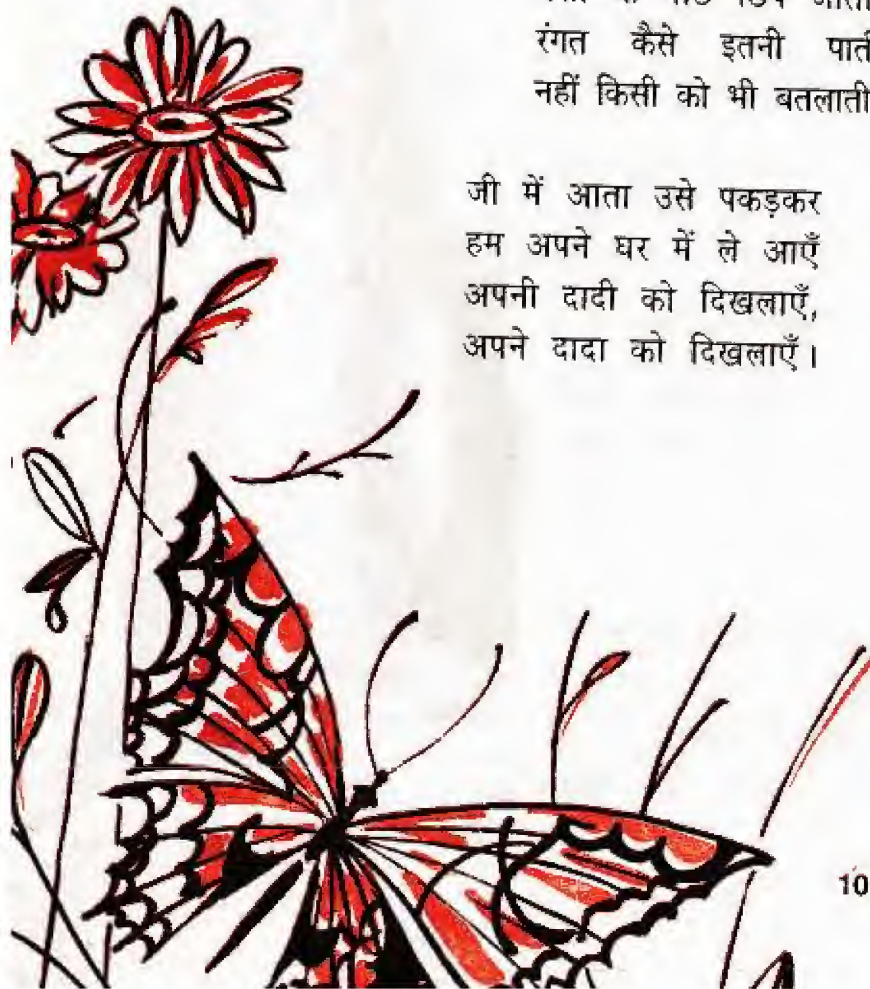 रंगत कैसे इतनी पाती
नहीं किसी को भी बतलाती
जी में आता उसे पकड़कर
हम अपने घर में ले आएँ
अपनी दादी को दिखलाएँ,
अपने दादा को दिखलाएँ।
10